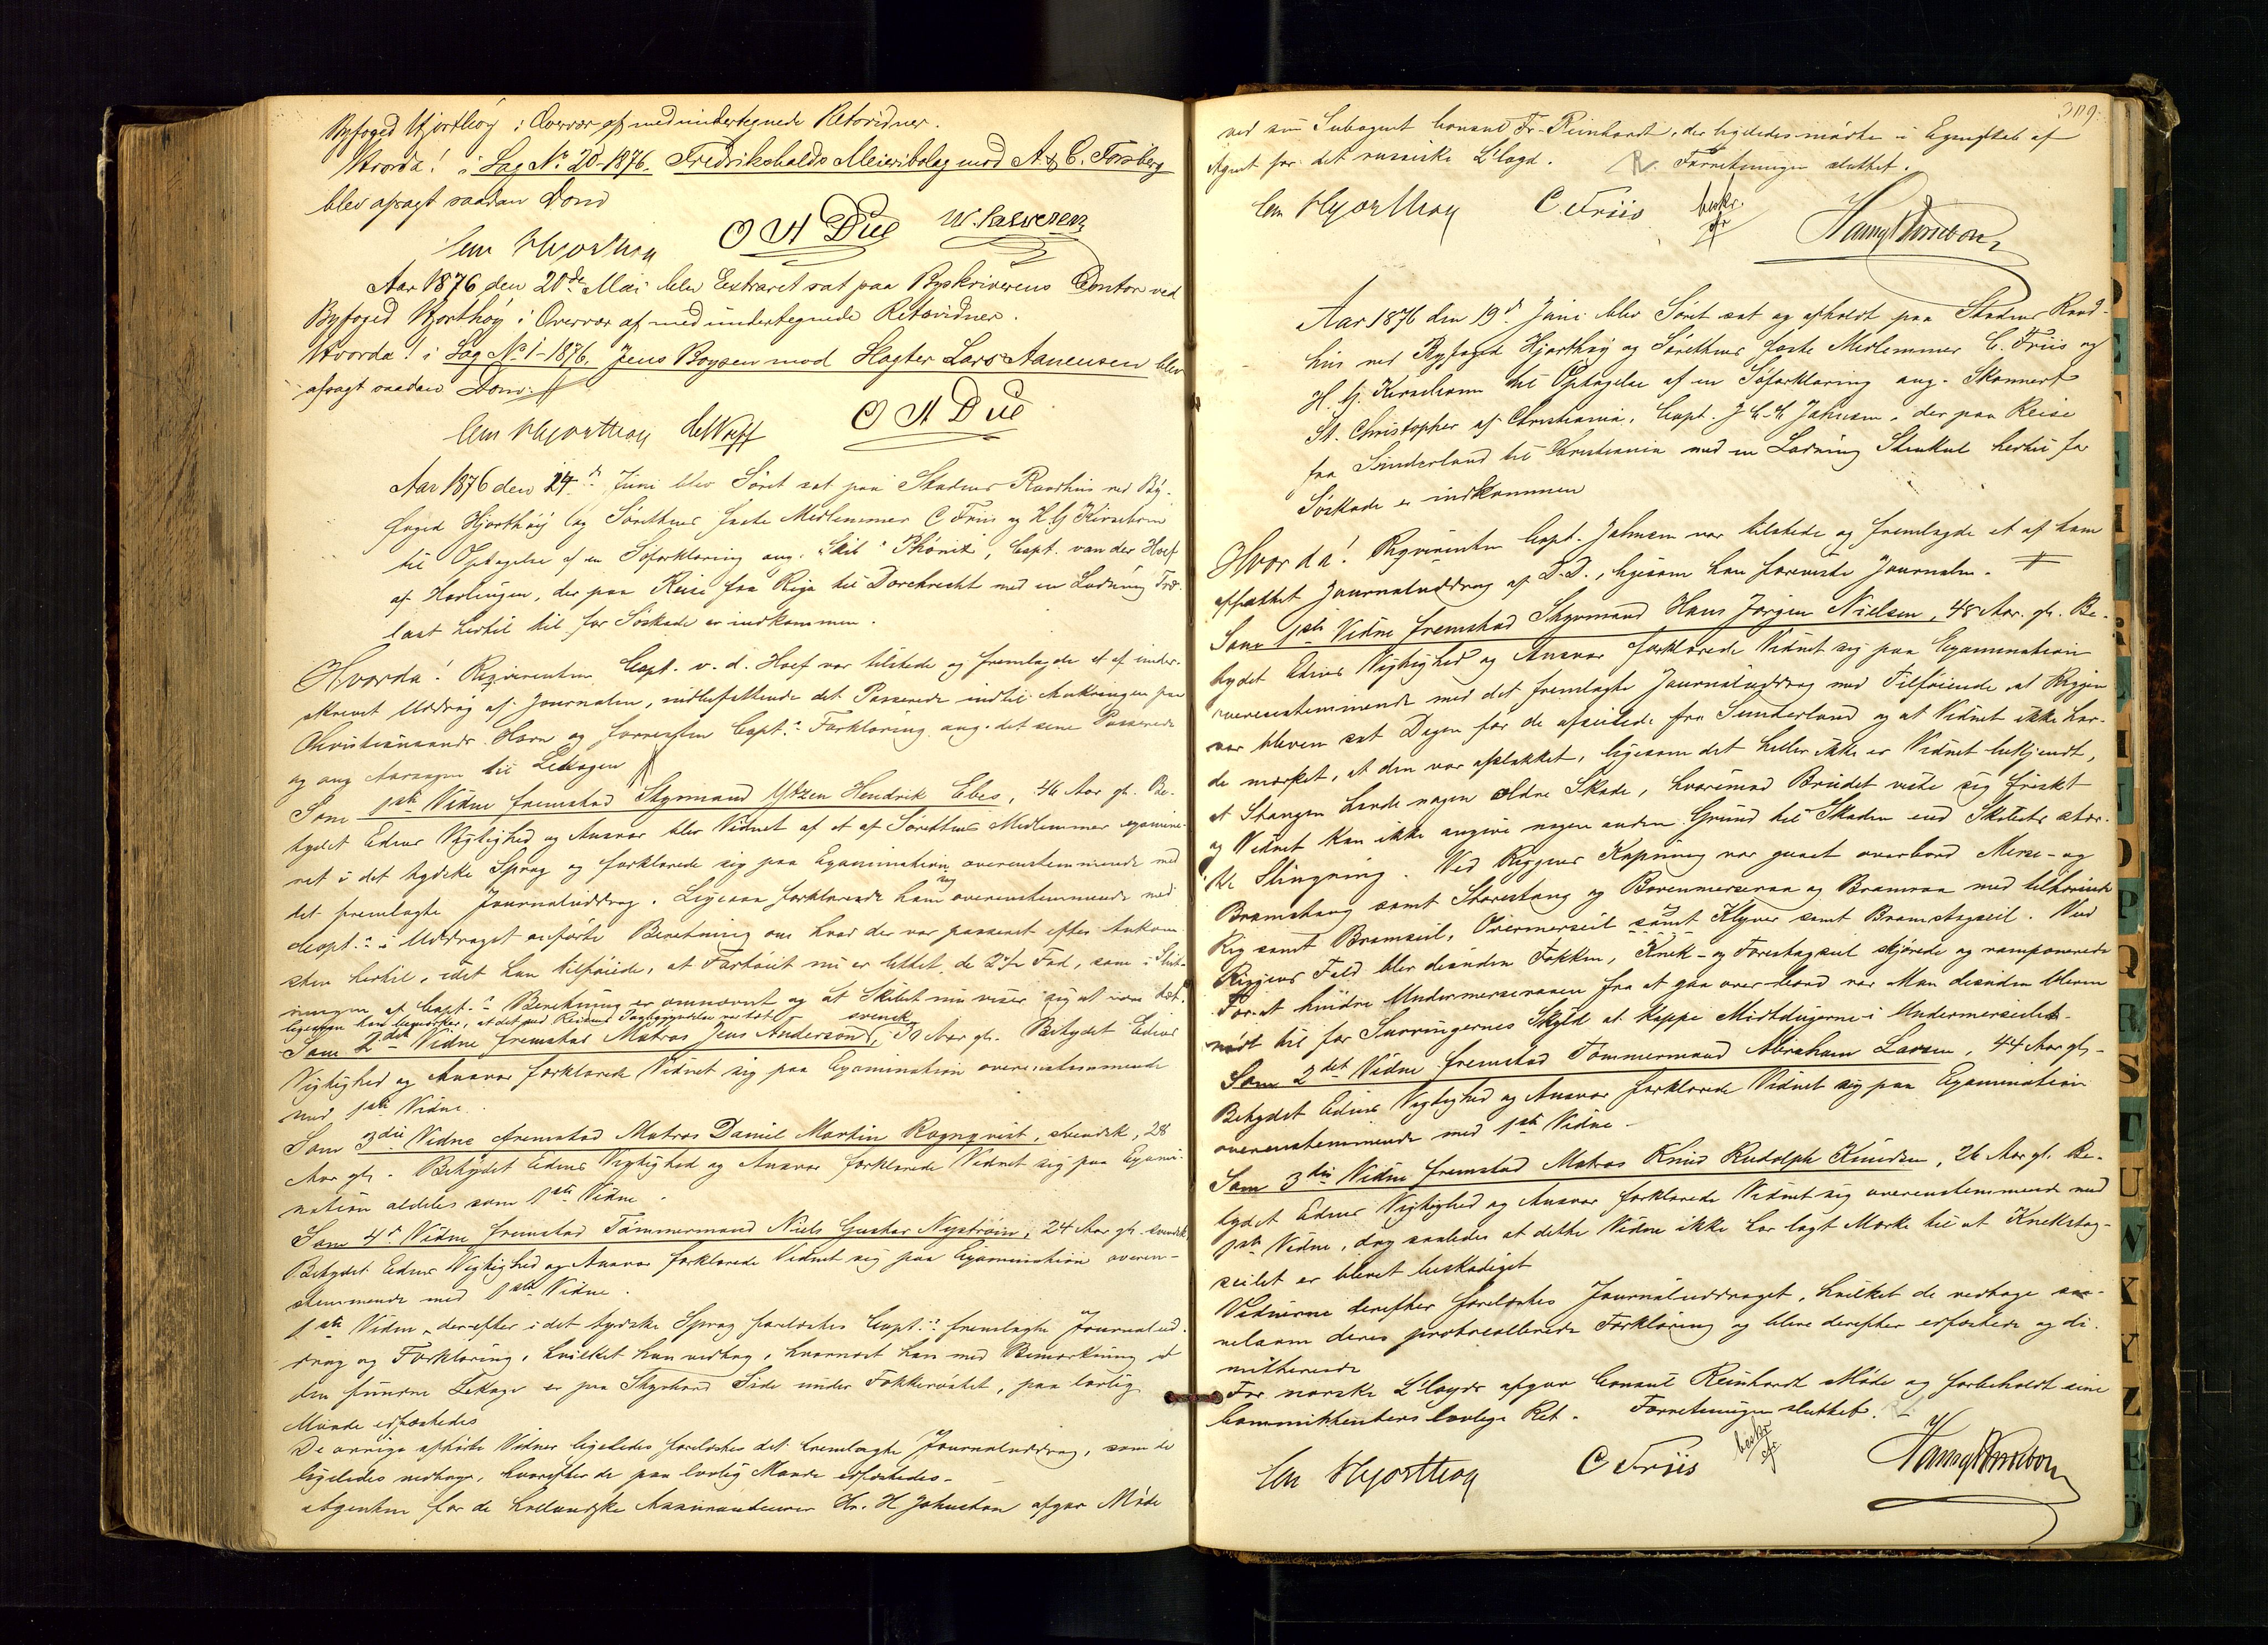 Byfoged Hjorthøy i Overvær af medundertegnede Retsvidner.
Hvorda! i Sag No 20-1876. Fredrikshalds Meieribolag mod A. & C. Forsberg
blev afsagt saadan Dom
Chr Hjorthøy O A Due
Aar 1876 den 20de Mai blev Extraret sat paa Byskriverens Contor ved
Byfoged Hjorthøy i Overvær af medundertegnede Retsvidner.
Hvorda! i Sag No 1-1876. Jens Boysen mod Slagter Lars Aanensen blev
afsagt saadan Dom:
Chr Hjorthøy O A Due
Aar 1876 den 24de Juni blev Søret sat paa Stadens Raadhus ved By-
foged Hjorthøy og Sørettens faste Medlemmer C Friis og H. G Kirsebom
til Optagelse af en Søforklaring ang. Skib "Phønix", Capt. van der Hoef
af Harlingen, der paa Reise fra Riga til Dorchrecht med en Ladning Træ-
last hertil til for Søskade er indkommen.
Hvorda! Reqvirenten Capt. v. d. Hoef var tilstede og fremlagde et af under-
skrevet Uddrag af Journalen, indbefattende det Passerede indtil Ankomsten paa
Christianssands Havn og forresten Capt.s Forklaring ang. det sene Passerede
og ang Aarsagen til Lekagen
Som 1ste Vidne fremstod Styrmand Ytzen Hendrik Ebes, 46 Aar gl. Be-
tydet Edens Vigtighed og Ansvar blev Vidnet af et af Sørettens Medlemmer examine-
ret i det tydske Sprog og forklarede sig paa Examination overensstemmende med
det fremlagte Journaluddrag. Ligesaa forklarede han sig overensstemmende med
Capt.s i Uddraget anførte Beretning om hvad der var passeret efter Ankom-
sten hertil, idet han tilføiede, at Fartøiet nu er lettet de 2½ Fod, som i Slut-
ningen af Capt.s Beretning er omnævnt og at Skibet nu viser sig at være tæt.
ligesom han bemærker, at det ved Reisens Paabegyndelse var tæt
Som 2det Vidne fremstod Matros Jens Anderson, svensk, Aar gl. Betydet Edens
Vigtighed og Ansvar forklarede Vidnet sig paa Examination overensstemmende
med 1ste Vidne.
Som 3die Vidne fremstod Matros Daniel Martin Rognqvist, svensk, 28
Aar gl. Betydet Edens Vigtighed og Ansvar forklarede Vidnet sig paa Exami-
nation aldeles som 1ste Vidne.
Som 4de Vidne fremstod Tømmermand Niels Gustav Nystrøm, 24 Aar gl. svensk
Betydet Edens Vigtighed og Ansvar forklarede Vidnet sig paa Examination overen-
stemmende med 1ste Vidne.
1ste Vidne derefter i det tydske Sprog forelæstes Capt.s fremlagte Journalud-
drag og Forklaring, hvilket han vedtog, hvornæst han med Bemærkning at
den fundne Lekage er paa Styrbord Side under Fokkerøstet, paa lovlig
Maade edfæstedes
De øvrige afhørte Vidner ligeledes forelæstes det fremlagte Journaluddrag, som de
ligeledes vedtoge, hvorefter de paa lovlig Maade edfæstedes.
Agenten for de hollandske Assurandeurer Hr. H Johnston afgav Møde
309.
ved sin Subagent Consul Fr. Reinhardt, der ligeledes mødte i Egenskab af
Agent for det russiske Lloyd. Forretningen sluttet.
Chr Hjorthøy C. Friis
Aar 1876 den 19de Juni blev Søret sat og afholdt paa Stadens Raad-
hus ved Byfoged Hjorthøy og Sørettens faste Medlemmer C. Friis og
H. G. Kirsebom til Optagelse af en Søforklaring ang. Skonnert
St. Christopher af Christiania, Capt. J. C. Jahnsen, der paa Reise
fra Sunderland til Christiania med en Ladning Stenkul hertil for
Søskade er indkommen
Hvorda! Reqvirenten Capt. Jahnsen var tilstede og fremlagde et af ham
affattet Journaluddrag af D.D., ligesom han foreviste Journalen.
Som 1ste Vidne fremstod Styrmand Hans Jørgen Nielsen, 48 Aar gl. Be-
tydet Edens Vigtighed og Ansvar forklarede Vidnet sig paa Examination
overensstemmende med det fremlagte Journaluddrag med Tilføiende, at Riggen
var bleven sat Dagen før de afseilede fra Sunderland og at Vidnet ikke hav-
de mærket, at den var afslakket, ligesom det heller ikke er Vidnet bekjendt,
at Stangen havde nogen ældre Skade, hvorimod Brudet viste sig friskt
og Vidnet kan ikke angive nogen anden Grund til Skaden end Skibets stær-
ke Slingring. Ved Riggens Kapning var gaaet overbord Merse- og
Bramstang samt Storestang og Bovenmerseraa og Bramraa med tilhørende
Rig samt Bramseil, Øvermerseil samt Klyver samt Bramstagseil. Ved
Riggens Fald blev desuden Fokken, Knek- og Forestagseil skjørede og ramponerede
For at hindre Undermerseraaen fra at gaa overbord var Man desuden bleven
nødt til for Surringernes Skyld at kappe Midtdugerne i Undermerseilet.
Som 2det Vidne fremstod Tømmermand Abraham Larsen, 44 Aar gl.
Betydet Edens Vigtighed og Ansvar forklarede Vidnet sig paa Examination
overensstemmende med 1ste Vidne.
Som 3die Vidne fremstod Matros Knud Rudolph Knudsen, 26 Aar gl. Be-
tydet Edens Vigtighed og Ansvar forklarede Vidnet sig overensstemmende med
1ste Vidne, dog saaledes at dette Vidne ikke har lagt Mærke til at Knekstag-
seilet er blevet beskadiget
Vidnerne derefter forelæstes Journaluddraget, hvilket de vedtoge saa-
velsom deres protocollerede Forklaring og bleve derefter edfæstede og di-
mitterede
For norske Lloyds afgav Consul Reinhardt Møde og forbeholdt sine
Committenters lovlige Ret. Forretningen sluttet.
Chr Hjorthøy C Friis
P
Q
R
S
T
U
V
X
Y
Z